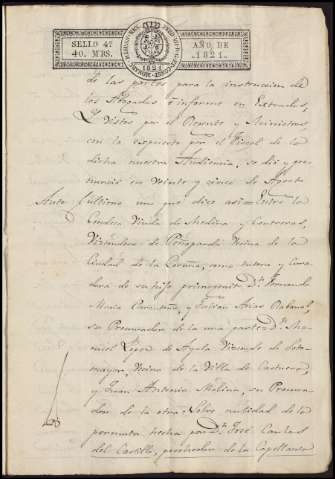 SELLO 4º AÑO DE
40. MRS. 1821.
1821
de las partes para la instruccion de
los Abogados e informe en Estrados,
Y Vistos por el Regente y Ministros,
con lo expuesto por el Fiscal de la
dicha nuestra Audiencia, se dió y pro
nunció en veinte y cinco de Agosto
Auto último uno que dice asi = Entre la
Condesa Viuda de Medina y Contreras,
Vizcondesa de Peñaparda Vecina de la
Ciudad de la Coruña, como tutora y Cura
dora de su hijo primogenito Dn. Fernando
Maria y Julian Arias Rabanal
su Procurador de la una parte: Dn. Ma
nuel Lopez de Ayala Vizconde de Soto
mayor, Vecino de la Villa de Castuera,
y Juan Antonio Molina, su Procura
dor de la otra: Sobre nulidad de la
permuta hecha por Dn. José
del Castillo, de la Capellania